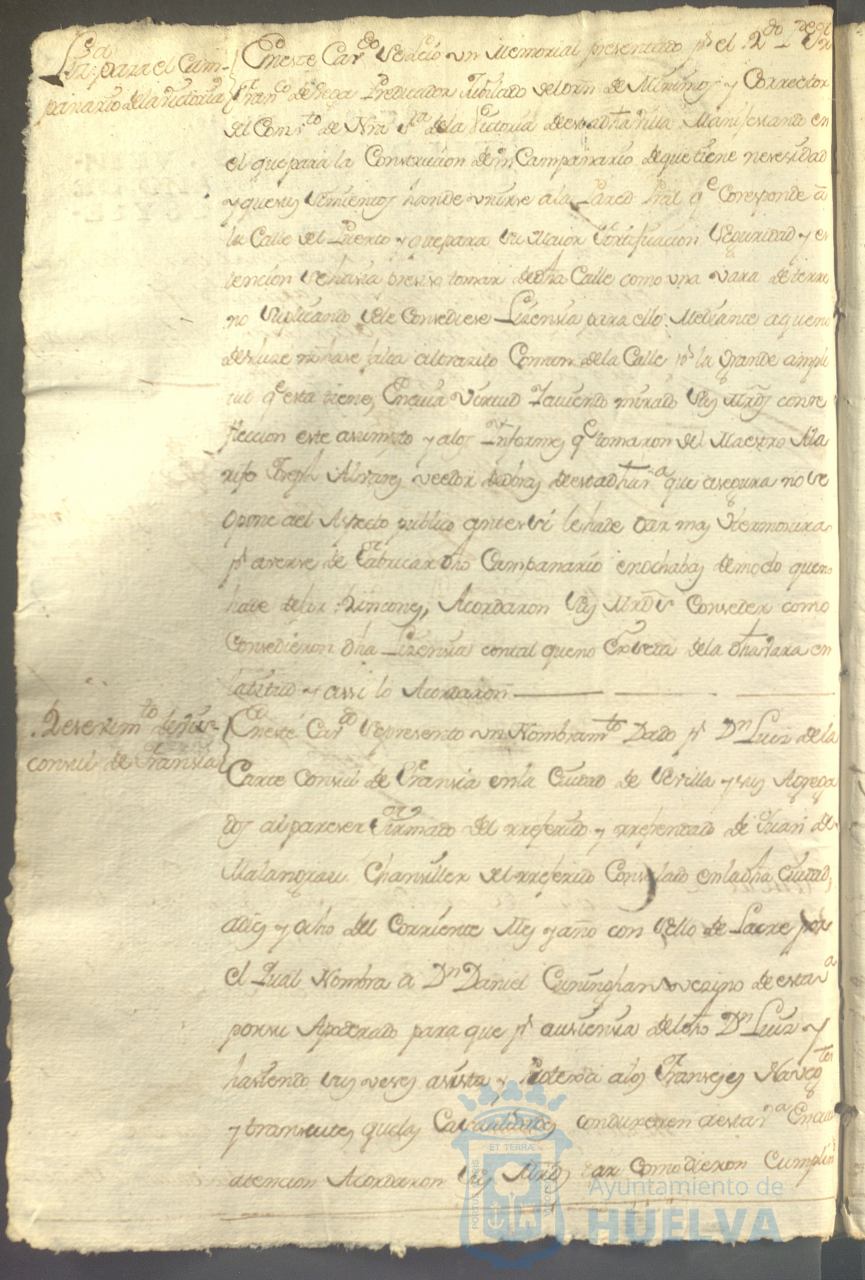 Lizª para el Cam-
panario de la Victoria
En este Cavdo Se leció un Memorial presentado pr el Rdo Pe
Franco de Vega Predicador Jubilado del orn de Minimos y Corrector
del Convto de Nra Sra de la Victoria de esta dha Villa Manifestando en
el que para la Construccion de un Campanario de que tiene nesesidad
y que sus Simientos han de vnirse a la Pared Pral qe Coresponde â
la Calle del Puerto y que para su Maior Fortificacion Seguridad y es
tencion Se hasia presiso tomar de dha Calle como vna vara de terre
no Suplicando Se le Consediese Lizensia para ello Mediante a que no
desluze ni hase falta al transito Comun de la Calle pr la grande ampli
tud qe esta tiene, En cuia virtud Haviendo mirado Sus Mrds con re
fleccion este asumpto y a los Informes qe tomaron del Maestro Ala
rife Joseph Alvares veedor de obras de esta dha vª que asegura no se
opone a el Aspecto publico antes si le ha de dar mas Hermosura
pr averse de Fabricar dho Campanario enochabas de modo que no
ha de tener Rincones, Acordaron Sus Mrds Conseder como
Consedieron dha Lizensia con tal que no Exseda de la dha vara en
latitud y assi lo Acordaron
Resevimto de Vis-
consul de Fransia
En este Cavdo Se presento un Nombramto Dado pr Dn Luis de la
Carte Consul de Fransia en la Ciudad de Sevilla y sus Agrega
dos al pareser Firmado del rreferido y rrefrendado de Juan de
Malangrasu Chansiller del rreferido Consulado en la dha Ciudad,
a dies y ocho del Corriente Mes y año con Sello de Lacre por
el Qual Nombra a Dn Daniel Cuninghan vezino de esta vª
por su Apoderado para que pr ausensia del dho Dn Luis y
hasiendo sus veses asista y Protexa a los Franseses Navegtes
y transeuntes, que las Casualidades condugeren a esta vª En cuia
atencion Acordaron Sus Mrds dar Como dieron Cumplim
ET TERRAE
Ayuntamiento de
HUELVA